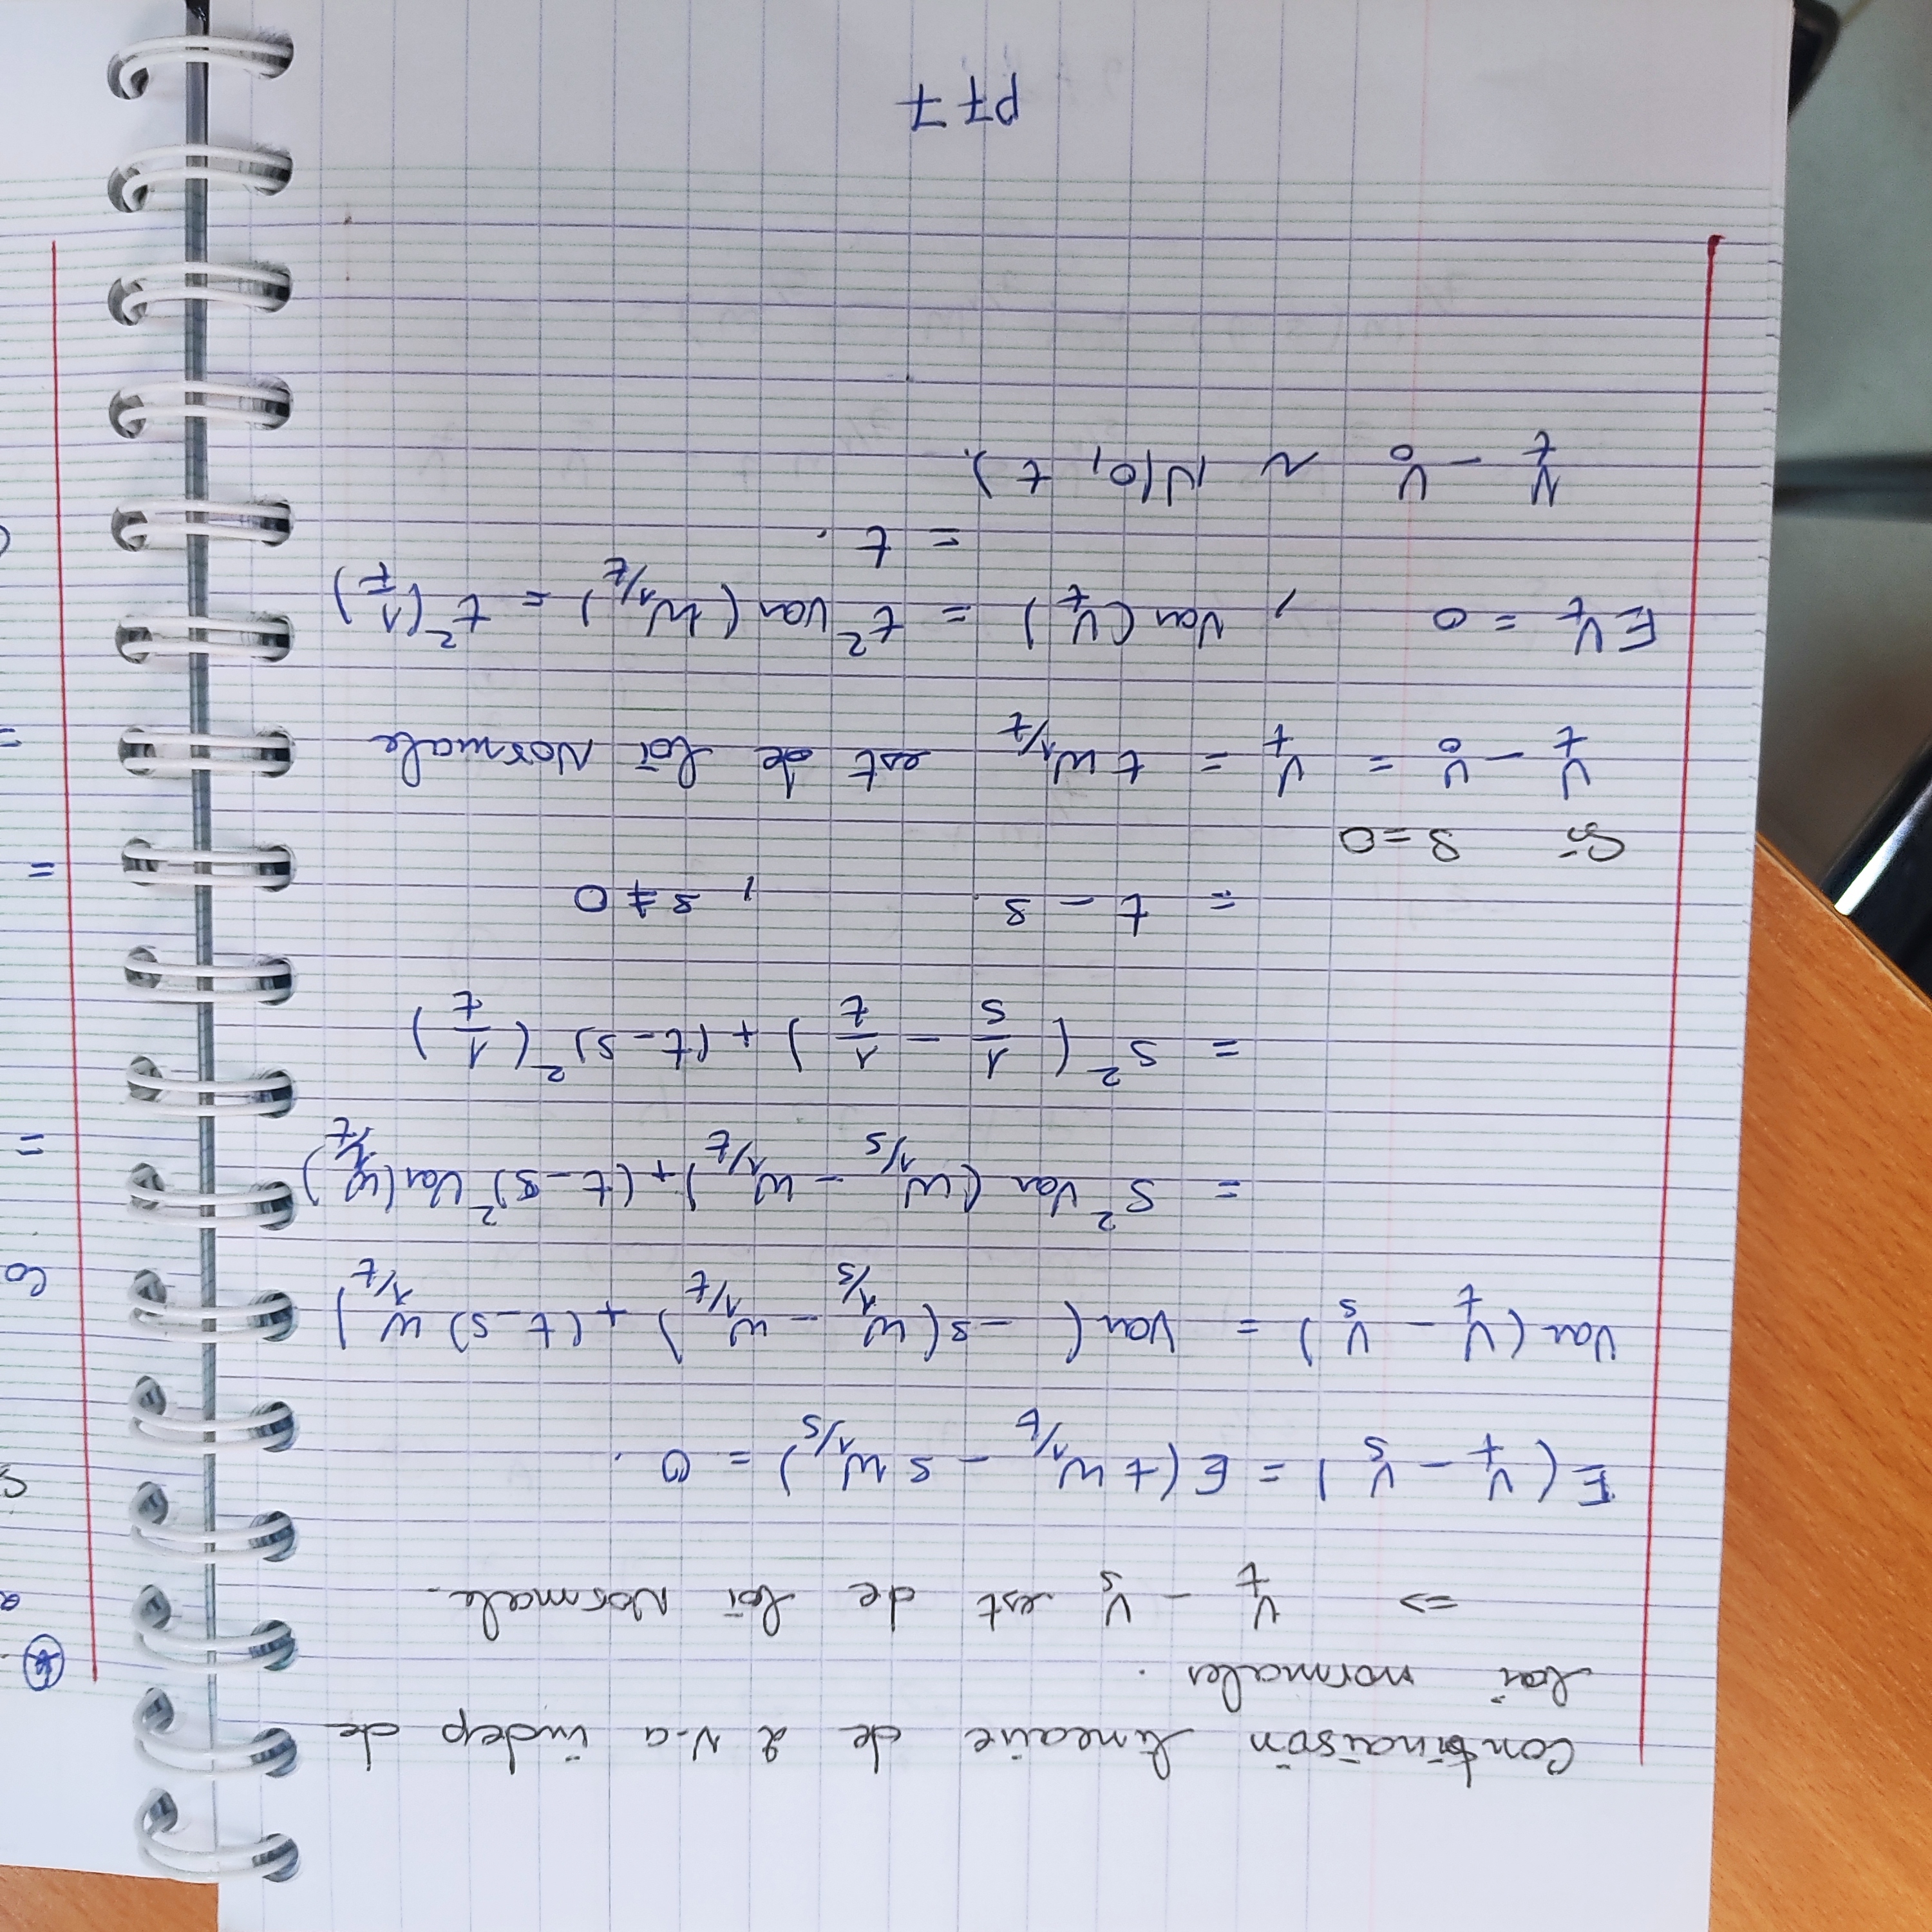 Combinaison lineaire de 2 v.a indep de
loi normales.
=> V_t - V_s est de loi Normale.
E(V_t - V_s) = E(t W_{1/t} - s W_{1/s}) = 0.
Var(V_t - V_s) = Var(-s(W_{1/s} - W_{1/t}) + (t-s) W_{1/t})
= s² Var(W_{1/s} - W_{1/t}) + (t-s)² Var(W_{1/t})
= s² (1/s - 1/t) + (t-s)² (1/t)
= t - s , s ≠ 0
Si s = 0
V_t - V_0 = V_t = t W_{1/t} est de loi Normale
E V_t = 0 , Var(V_t) = t² Var(W_{1/t}) = t² (1/t)
= t.
V_t - V_0 ~ N(0, t).
P77